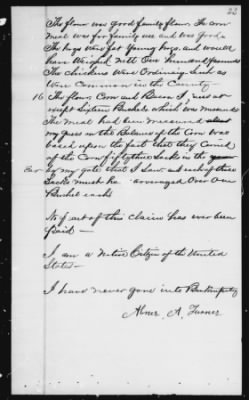 22
The flour was good family flour. The corn
meal was for family use and was Good.
The hogs were fat Young hogs, and would
have weighed nett two hundred pounds
The chickens were Ordinary, such as
were Common in the County.
16 The flour, Corn and Bacon I did so
except Sixteen Bushels which was measured
The meal had been measured
my guess in the Balance of the Corn was
based upon the fact that they Carried
of the Corn fifty three Sacks in the
Ear by my gate that I Saw, each of these
Sacks must have averaged Over One
Bushel each
No part of this claim has ever been
Paid —
I am a Native Citizen of the United
States —
I have never gone into Bankruptcy
Abner A. Turner